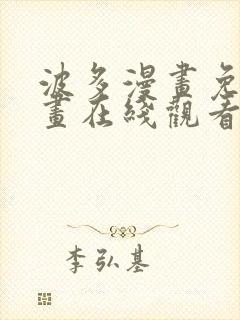 波多漫畫免
畫在綫觀看
李弘基